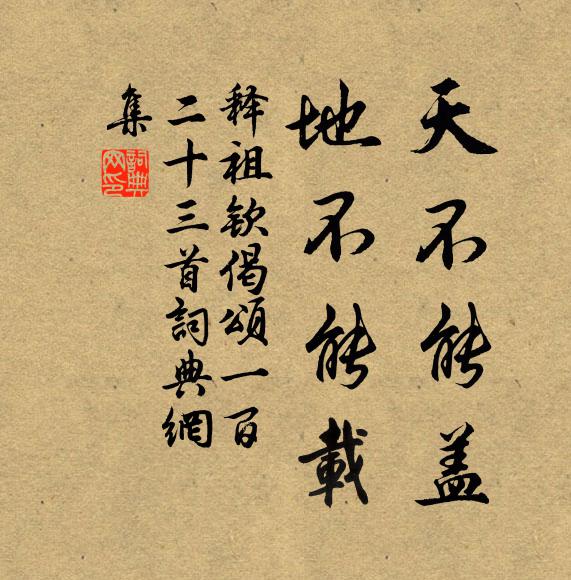 天不能盖
地不能載
释祖钦偈頌一百
二十三首詞典網
集
詞典网印